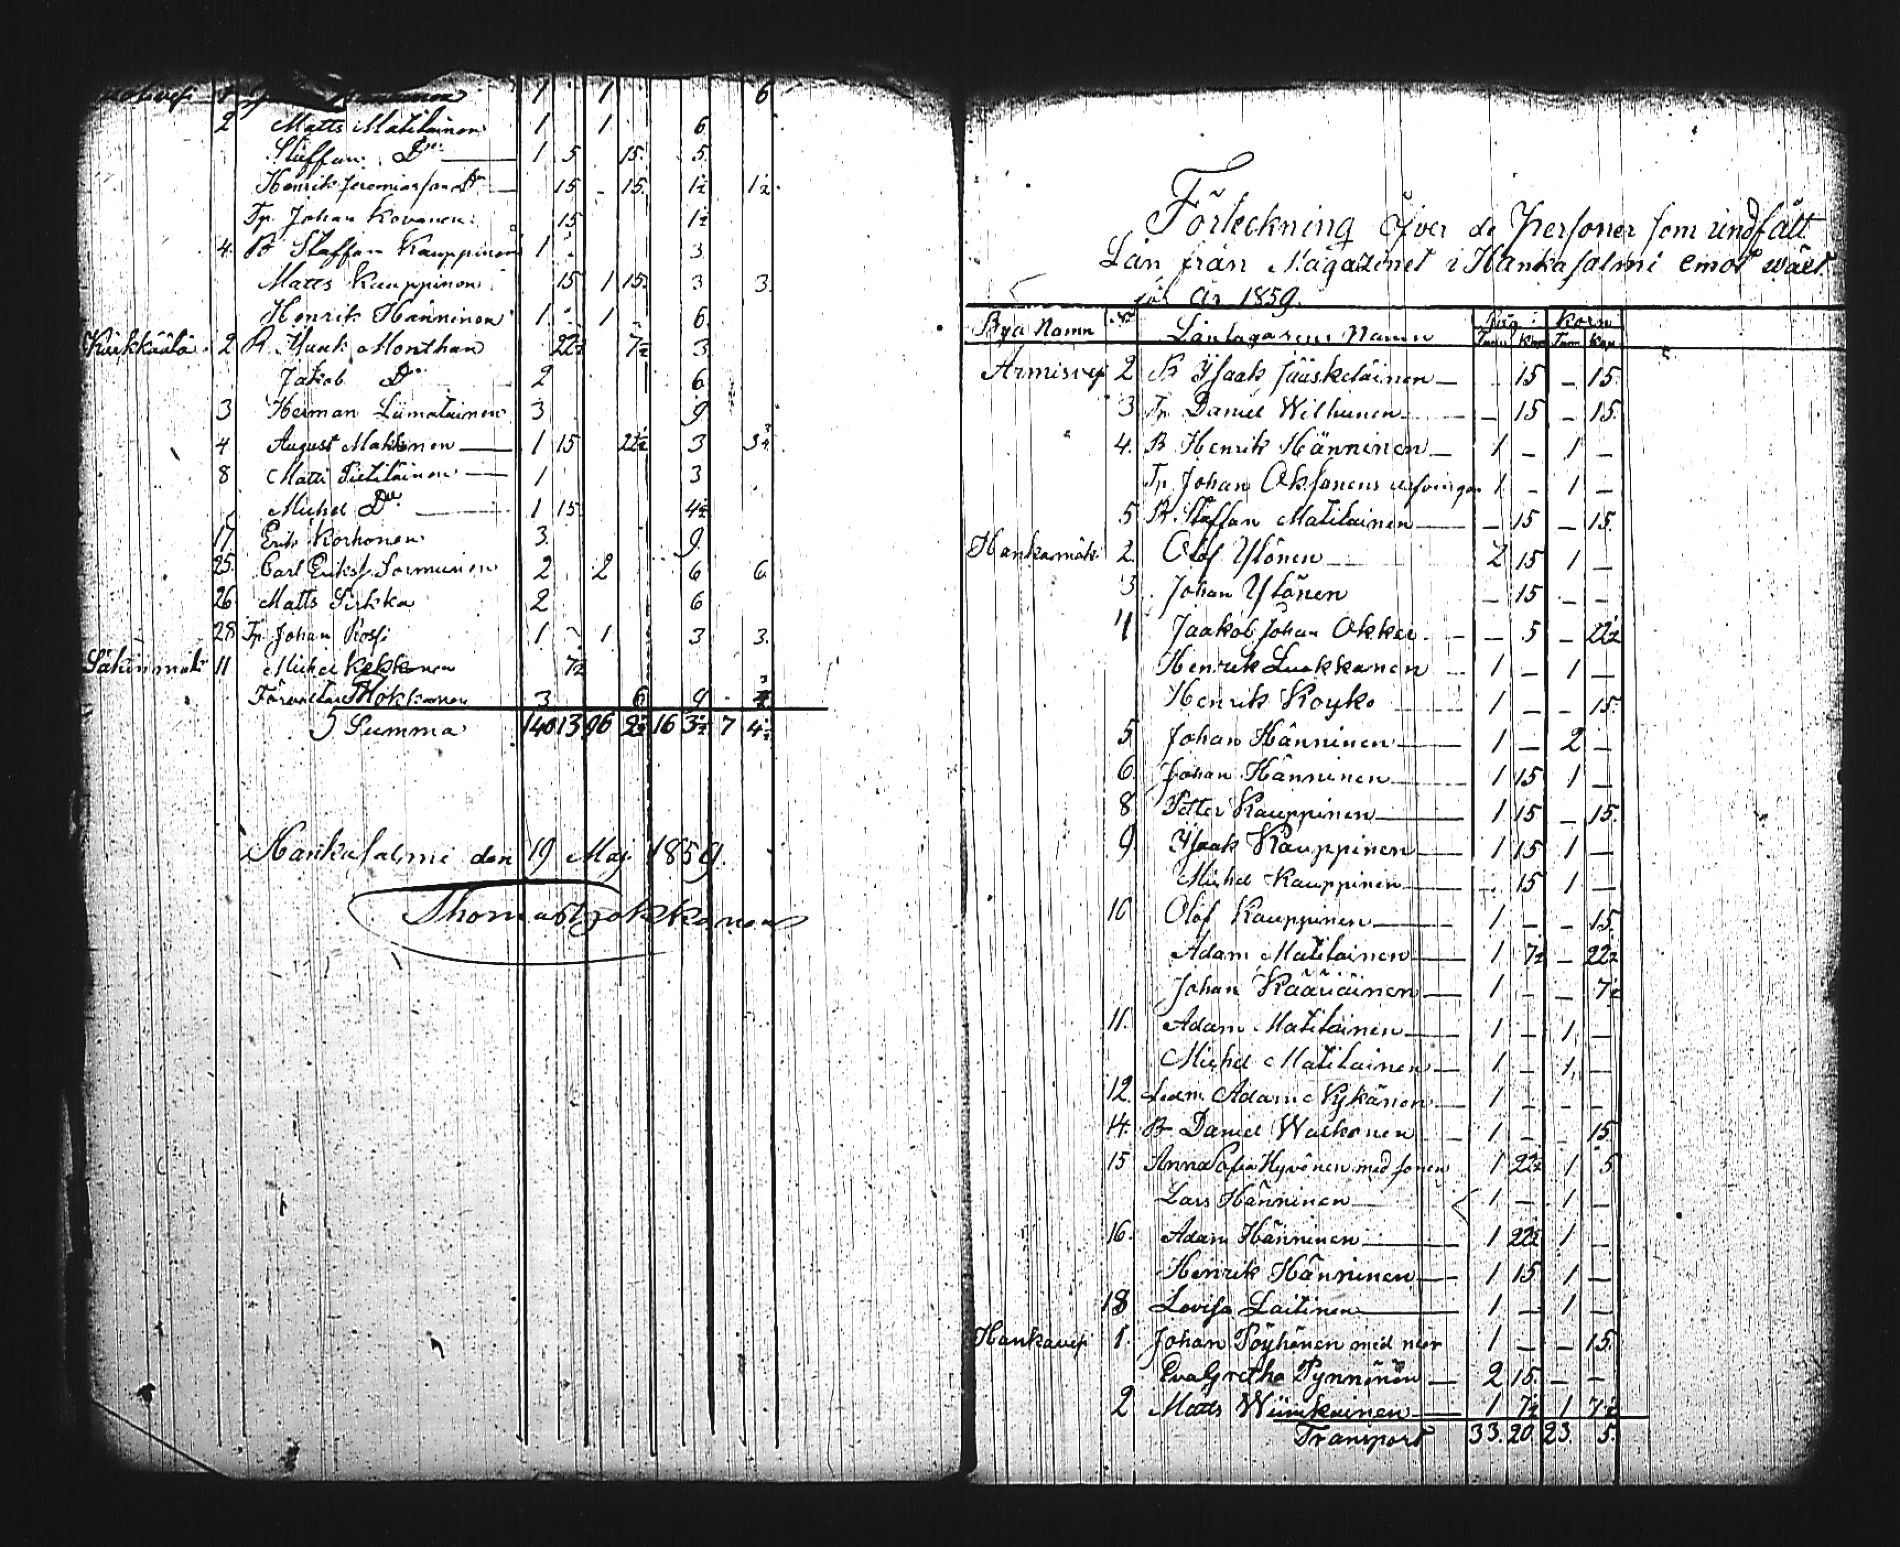 1 1 6
2 Matts Matilainen 1 1 6
Staffan Do 1 5 15 5
Henrik Jeremiasson Do 15 - 15 1½ 1½
Tp. Johan Kovanen 15 1½
4 B Staffan Kauppinen 1 - 3
Matts Kauppinen 15 1 15 3 3
Henrik Hänninen 1 - 1 6
2 B. Isaak Monthan 22½ 7½ 3
Jakob Do 2 6
3 Herman Liimatainen 3 9
4 August Makkonen 1 15 22½ 3 3¾
8 Matts Tietiläinen 1 3
Michel Do 1 15 4½
17 Erik Korhonen 3 9
25 Carl Erikss. Sormunen 2 2 6 6
26 Matts Sirkka 2 6
28 Tp. Johan Rossi 1 - 1 3 3
Säkinmäki 11 Michel Kekkonen 7½
Förvaltar Hokkanen 3 6 9
Summa 140 13 96 2½ 16 3½ 7 4½
Hankasalmi den 19 Maj 1859.
Thomas Hokkanen
Förteckning öfver de Personer som undfått
Lån från Magazinet i Hankasalmi emot wäxt
år 1859.
Bya Namn No Låntagarens Namn Råg Korn
Tunn Kap Tunn Kap
Armisvesi 2 B Isaak Jääskeläinen - 15 - 15
3 Tp. Daniel Wilhunen - 15 - 15
4. B Henrik Hänninen 1 - 1 -
Tp. Johan Oksanens arfvingar 1 - 1 -
5 B. Staffan Matilainen - 15 - 15
Hankamäki 2. Olof Ylönen 2 15 1 -
3 Johan Ylönen - 15 - -
4 Jaakob Johan Okker - 5 - 22½
Henrik Luukkanen 1 - 1 -
Henrik Koyko 1 - - 15
5 Johan Hänninen 1 - 2 -
6 Johan Hänninen 1 15 1 -
8 Petter Kauppinen 1 15 - 15
9 Isaak Kauppinen 1 15 1 -
Michel Kauppinen - 15 1 -
10 Olof Kauppinen 1 - - 15
Adam Matilainen 1 7½ - 22½
Johan Kääriäinen 1 - - 7½
11. Adam Matilainen 1 - 1 -
Michel Matilainen 1 - 1 -
12. Adam Nykänen 1 - - -
14. B Daniel Waikonen 1 - - 15
15 Anna Sofia Hyvönen med sonen 1 22½ 1 5
Lars Hänninen 1 - 1 -
16. Adam Hänninen 1 22½ 1 -
Henrik Hänninen 1 15 1 -
18 Lovisa Laitinen 1 - 1 -
Hankavesi 1. Johan Pöyhönen med mor 1 - - 15
Eva Gretha Pynnönen 2 15 - -
2 Matts Wiinikainen 1 7½ 1 7½
Transport 33. 20 23. 5.